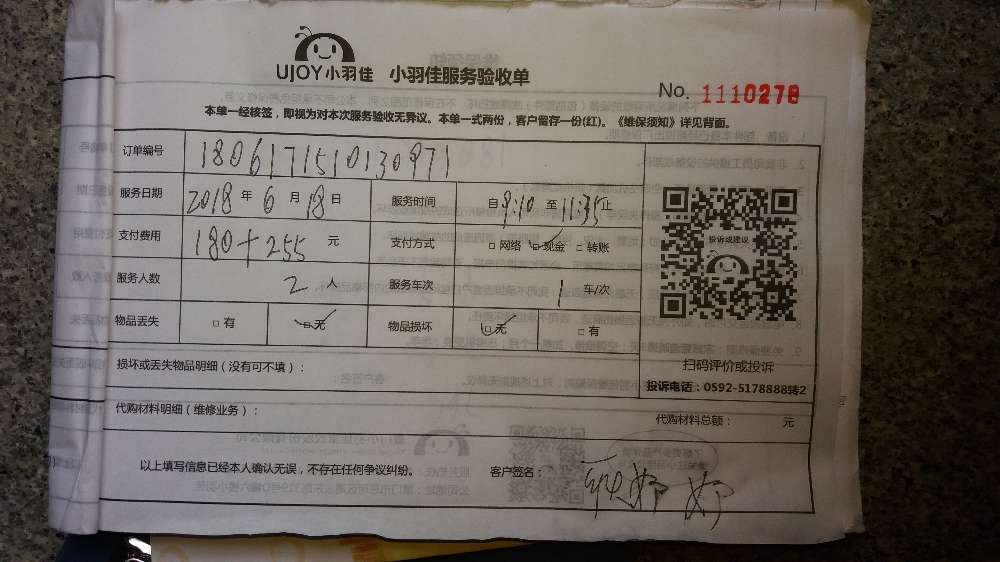 UJOY小羽佳 小羽佳服务验收单
No. 1110278
本单一经核签，即视为对本次服务验收无异议。本单一式两份，客户留存一份(红)。《维保须知》详见背面。
订单编号 1806171510130971
服务日期 2018 年 6 月 18 日 服务时间 自 9:10 至 11:35 止
支付费用 180+255 元 支付方式 □ 网络 □ 现金 □ 转账
投诉或建议
服务人数 2 人 服务车次 1 车/次
物品丢失 □ 有 □ 无 物品损坏 □ 无 □ 有
损坏或丢失物品明细（没有可不填）：
扫码评价或投诉
投诉电话：0592-5178888转2
代购材料明细（维修业务）： 代购材料总额： 元
以上填写信息已经本人确认无误，不存在任何争议纠纷。 客户签名：